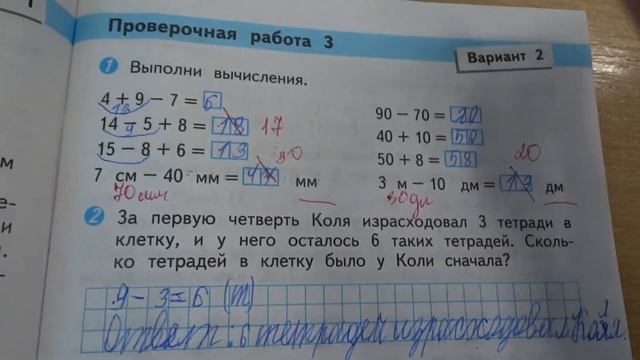 Проверочная работа 3
Вариант 2
1 Выполни вычисления.
4 + 9 − 7 = 6
13
14 − 5 + 8 = 18 17
9
15 − 8 + 6 = 13
7 см − 40 мм = мм
30
70 мм
90 − 70 = 20
40 + 10 = 50
50 + 8 = 58
3 м − 10 дм = 13 дм
20
30 дм
2 За первую четверть Коля израсходовал 3 тетради в
клетку, и у него осталось 6 таких тетрадей. Сколь-
ко тетрадей в клетку было у Коли сначала?
9 − 3 = 6 (т)
Ответ: 6 тетрадей израсходовал Коля.